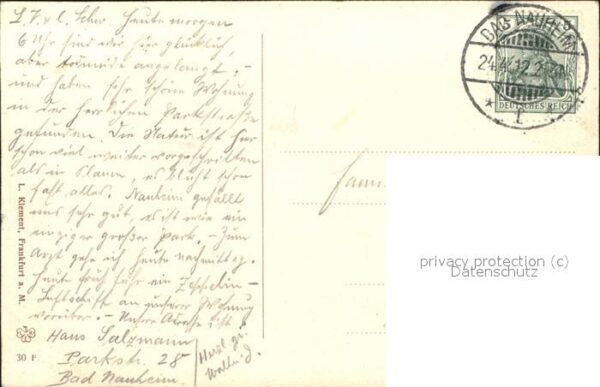 L. V. & l. Schw. Heute morgen
6 Uhr sind wir hier glücklich,
aber todmüde angelangt, -
und haben sehr schöne Wohnung
in der herrlichen Parkstraße
gefunden. Die Natur ist hier
schon viel weiter vorgeschritten
als in Plauen, es blüht schon
fast alles. Nauheim gefällt
uns sehr gut, es ist wie ein
einziger großer Park. - Zum
Arzt gehe ich heute nachmittag.
Heute früh fuhr ein Zeppelin-
Luftschiff an unserer Wohnung
vorüber. - Unsere Adresse ist:
Hans Salzmann
Parkstr. 28
Bad Nauheim
Herzl. Gr.
L. Klement, Frankfurt a. M.
30 F.
BAD NAUHEIM
24.4.12.
* 1
DEUTSCHES REICH
5
privacy protection (c)
Datenschutz